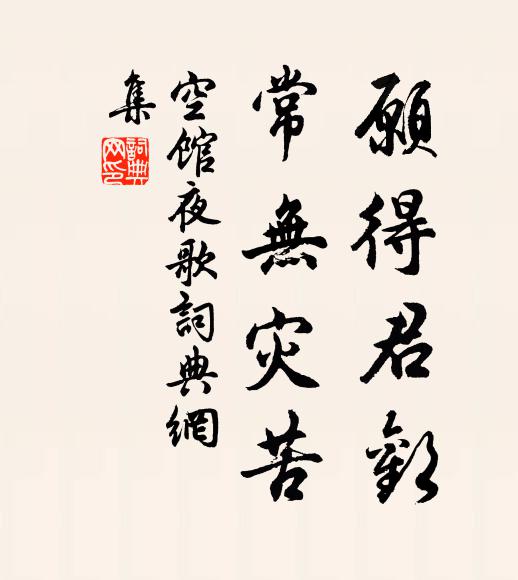 願得君歡
常無灾苦
空館夜歌詞典網
集
詞典網印